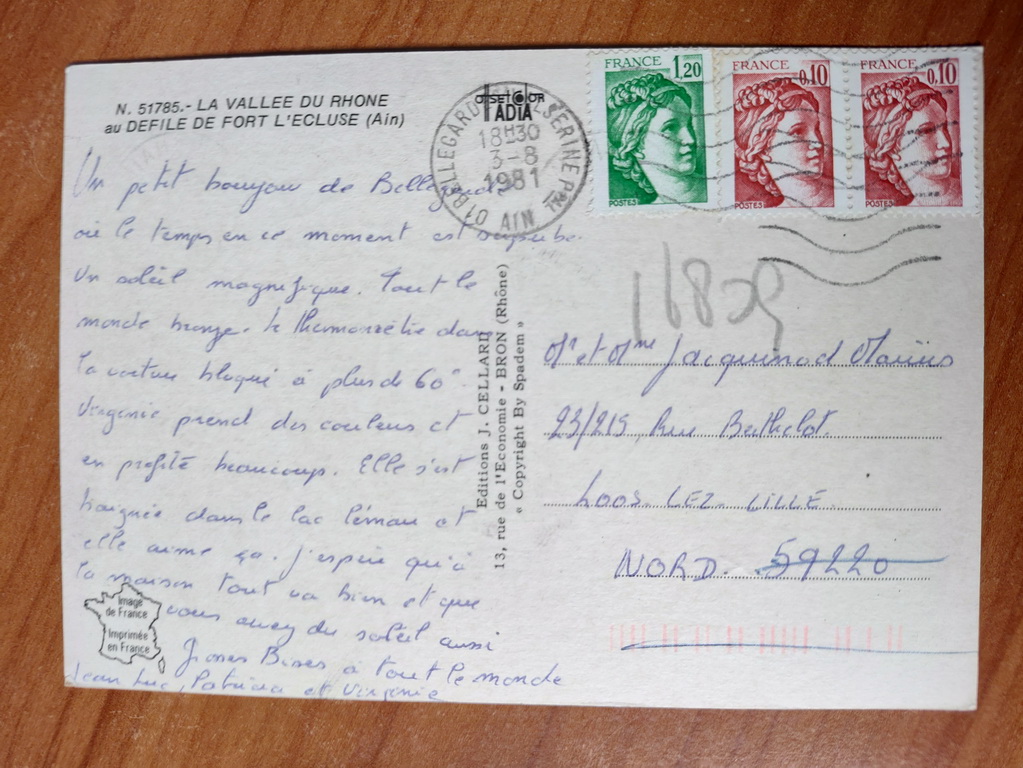 N. 51785.- LA VALLEE DU RHONE
au DEFILE DE FORT L'ECLUSE (Ain)
OFFSET COLOR
IADIA
01 BELLEGARDE SUR VALSERINE PAL
18H30
3-8
1981
AIN
FRANCE 1,20
POSTES
FRANCE 0,10
POSTES
FRANCE 0,10
POSTES
Un petit bonjour de Bellegarde
où le temps en ce moment est superbe.
Un soleil magnifique. Tout le
monde bronze. le thermomètre dans
la voiture bloqué à plus de 60°.
Virginie prend des couleurs et
en profite beaucoup. Elle s'est
baignée dans le lac léman et
elle aime ça. J'espère qu'à
la maison tout va bien et que
vous avez du soleil aussi
Grosses Bises à tout le monde
Jean Luc, Patricia et Virginie
Image
de France
Imprimée
en France
Editions J. CELLARD
13, rue de l'Economie - BRON (Rhône)
« Copyright By Spadem »
Mr et Mme Jacquinod Marius
23/215, Rue Berthelot.
LOOS-LEZ-LILLE
NORD. 59220